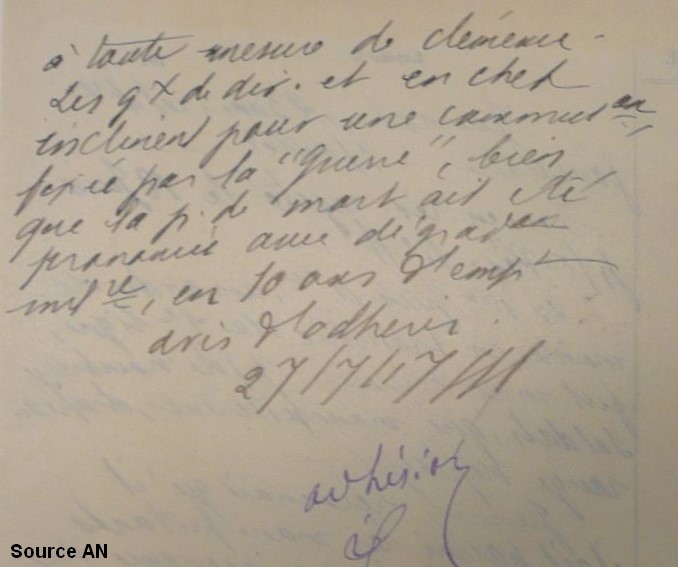 à toute mesure de clémence.
Les gx de div. et en chef
inclinent pour une commuton,
fixée par la "Guerre", bien
que la p. de mort ait été
prononcée avec dégradaon
milre, en 10 ans d'empt
avis d'adhérer.
27/7/17
adhésion
Source AN